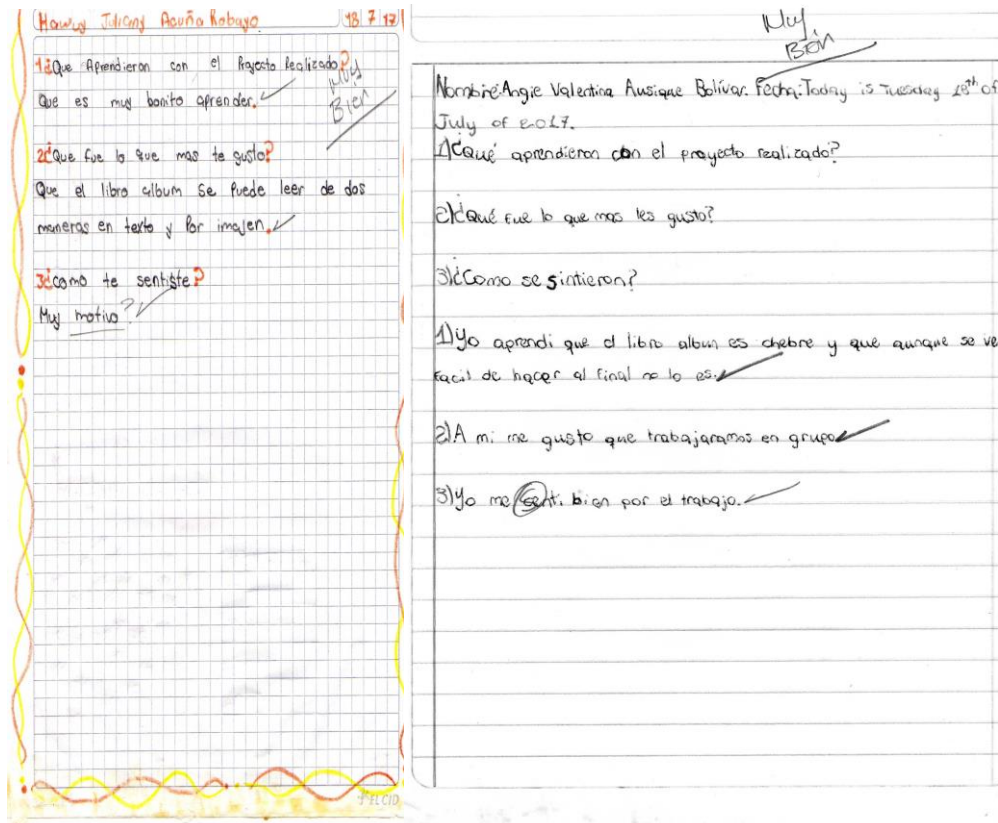 Juliany Acuña Robayo 18 7 17
1 ¿Que Aprendieron con el Proyecto Realizado?
Que es muy bonito aprender.
Muy
Bien
2 ¿Que fue lo que mas te gusto?
Que el libro album Se Puede leer de dos
maneras en texto y Por imajen.
3 ¿como te sentiste?
Muy motivo?
ELCID
Muy
Bien
Nombre: Angie Valentina Ausique Bolívar. Fecha: Today is Tuesday 18th of
July of 2017.
1) ¿Qué aprendieron con el proyecto realizado?
2) ¿Qué fue lo que mas les gusto?
3) ¿Como se sintieron?
1) Yo aprendi que el libro album es chebre y que aunque se ve
facil de hacer al final no lo es.
2) A mi me gusto que trabajaramos en grupo
3) Yo me senti bien por el trabajo.